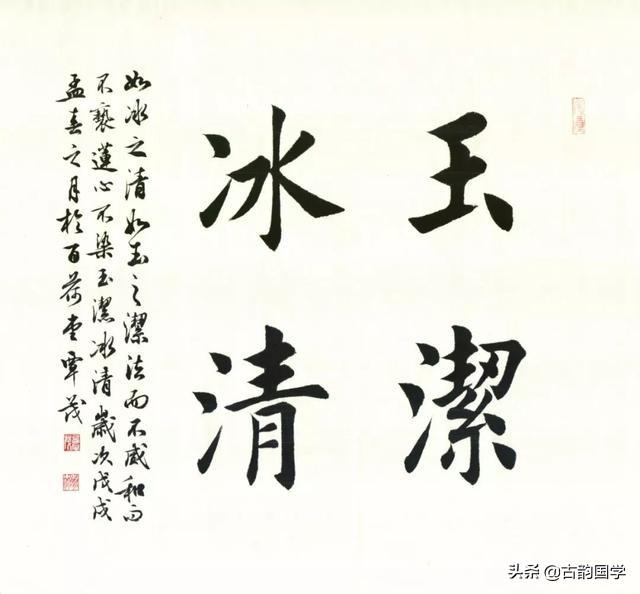 玉潔
冰清
如冰之清如玉之潔法而不威和而
不褻蓮心不染玉潔冰清歲次戊戌
孟春之月於百荷堂覃茂
头条 @古韵国学